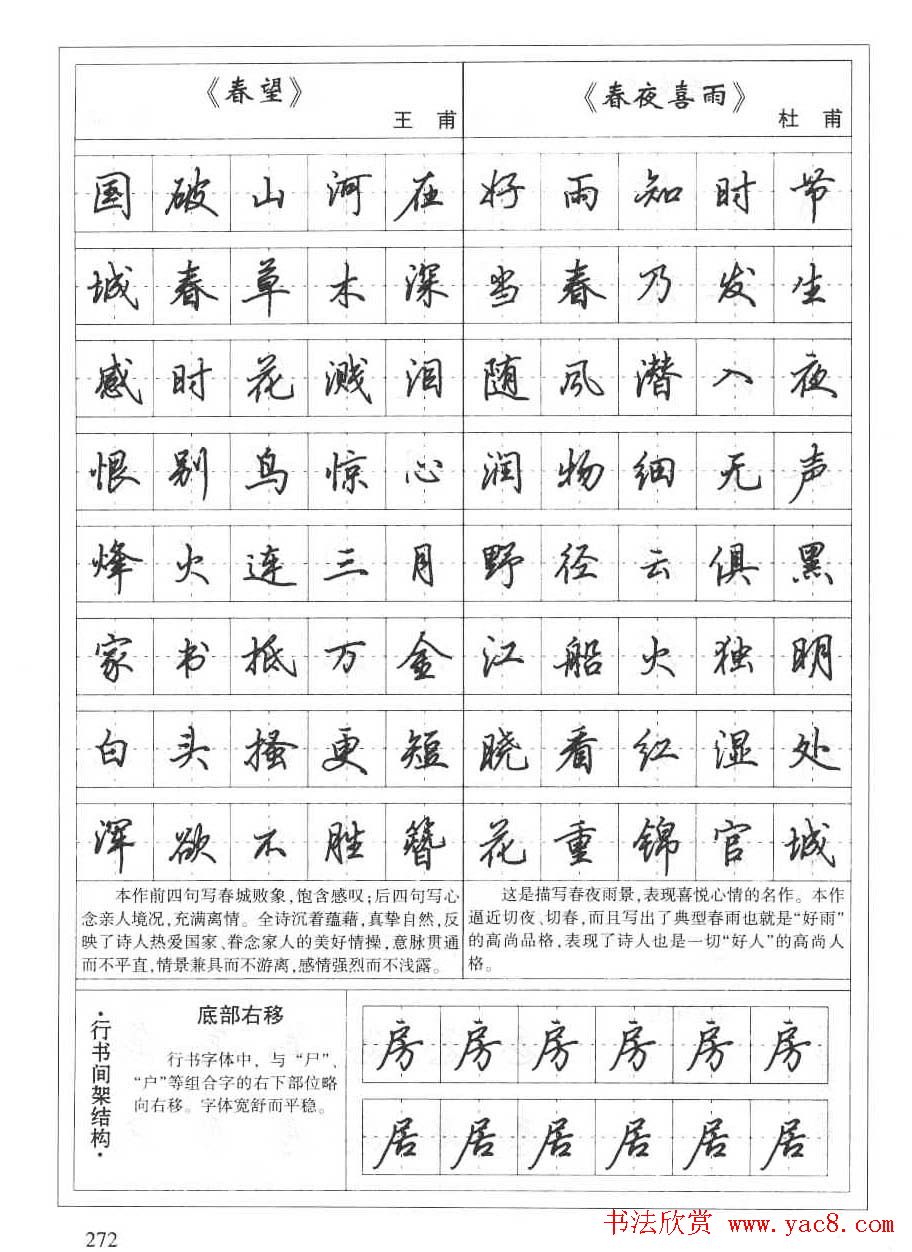 《春望》
王 甫
国破山河在
城春草木深
感时花溅泪
恨别鸟惊心
烽火连三月
家书抵万金
白头搔更短
浑欲不胜簪
本作前四句写春城败象,饱含感叹;后四句写心
念亲人境况,充满离情。全诗沉着蕴藉,真挚自然,反
映了诗人热爱国家、眷念家人的美好情操,意脉贯通
而不平直,情景兼具而不游离,感情强烈而不浅露。
《春夜喜雨》
杜 甫
好雨知时节
当春乃发生
随风潜入夜
润物细无声
野径云俱黑
江船火独明
晓看红湿处
花重锦官城
这是描写春夜雨景,表现喜悦心情的名作。本作
逼近切夜、切春,而且写出了典型春雨也就是“好雨”
的高尚品格,表现了诗人也是一切“好人”的高尚人
格。
·行书间架结构·
底部右移
行书字体中,与“尸”、
“户”等组合字的右下部位略
向右移。字体宽舒而平稳。
房房房房房房
居居居居居居
272
书法欣赏 www.yac8.com